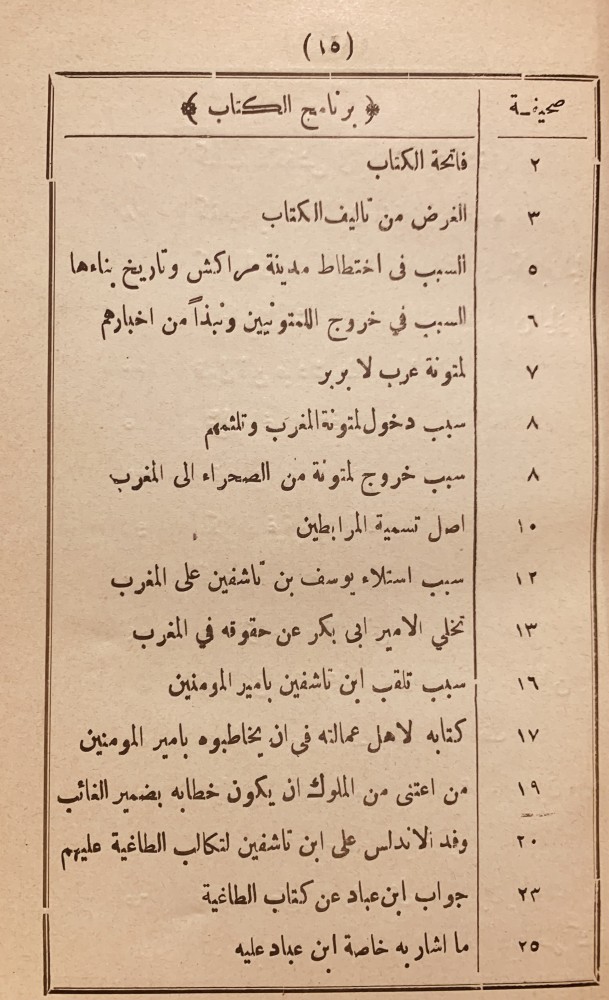 (١٥)
صحيفة ﴿ برنامج الكتاب ﴾
٢ فاتحة الكتاب
٣ الغرض من تاليف الكتاب
٥ السبب فى اختطاط مدينة مراكش وتاريخ بناءها
٦ السبب في خروج اللمتونيين ونبذاً من اخبارهم
٧ لمتونة عرب لا بربر
٨ سبب دخول لمتونة المغرب وتلثمهم
٨ سبب خروج لمتونة من الصحراء الى المغرب
١٠ اصل تسمية المرابطين
١٢ سبب استلاء يوسف بن تاشفين على المغرب
١٣ تخلي الامير ابى بكر عن حقوقه في المغرب
١٦ سبب تلقب ابن تاشفين بامير المومنين
١٧ كتابه لاهل عمالته في ان يخاطبوه بامير المومنين
١٩ من اعتنى من الملوك ان يكون خطابه بضمير الغائب
٢٠ وفد الاندلس على ابن تاشفين لتكالب الطاغية عليهم
٢٣ جواب ابن عباد عن كتاب الطاغية
٢٥ ما اشار به خاصة ابن عباد عليه